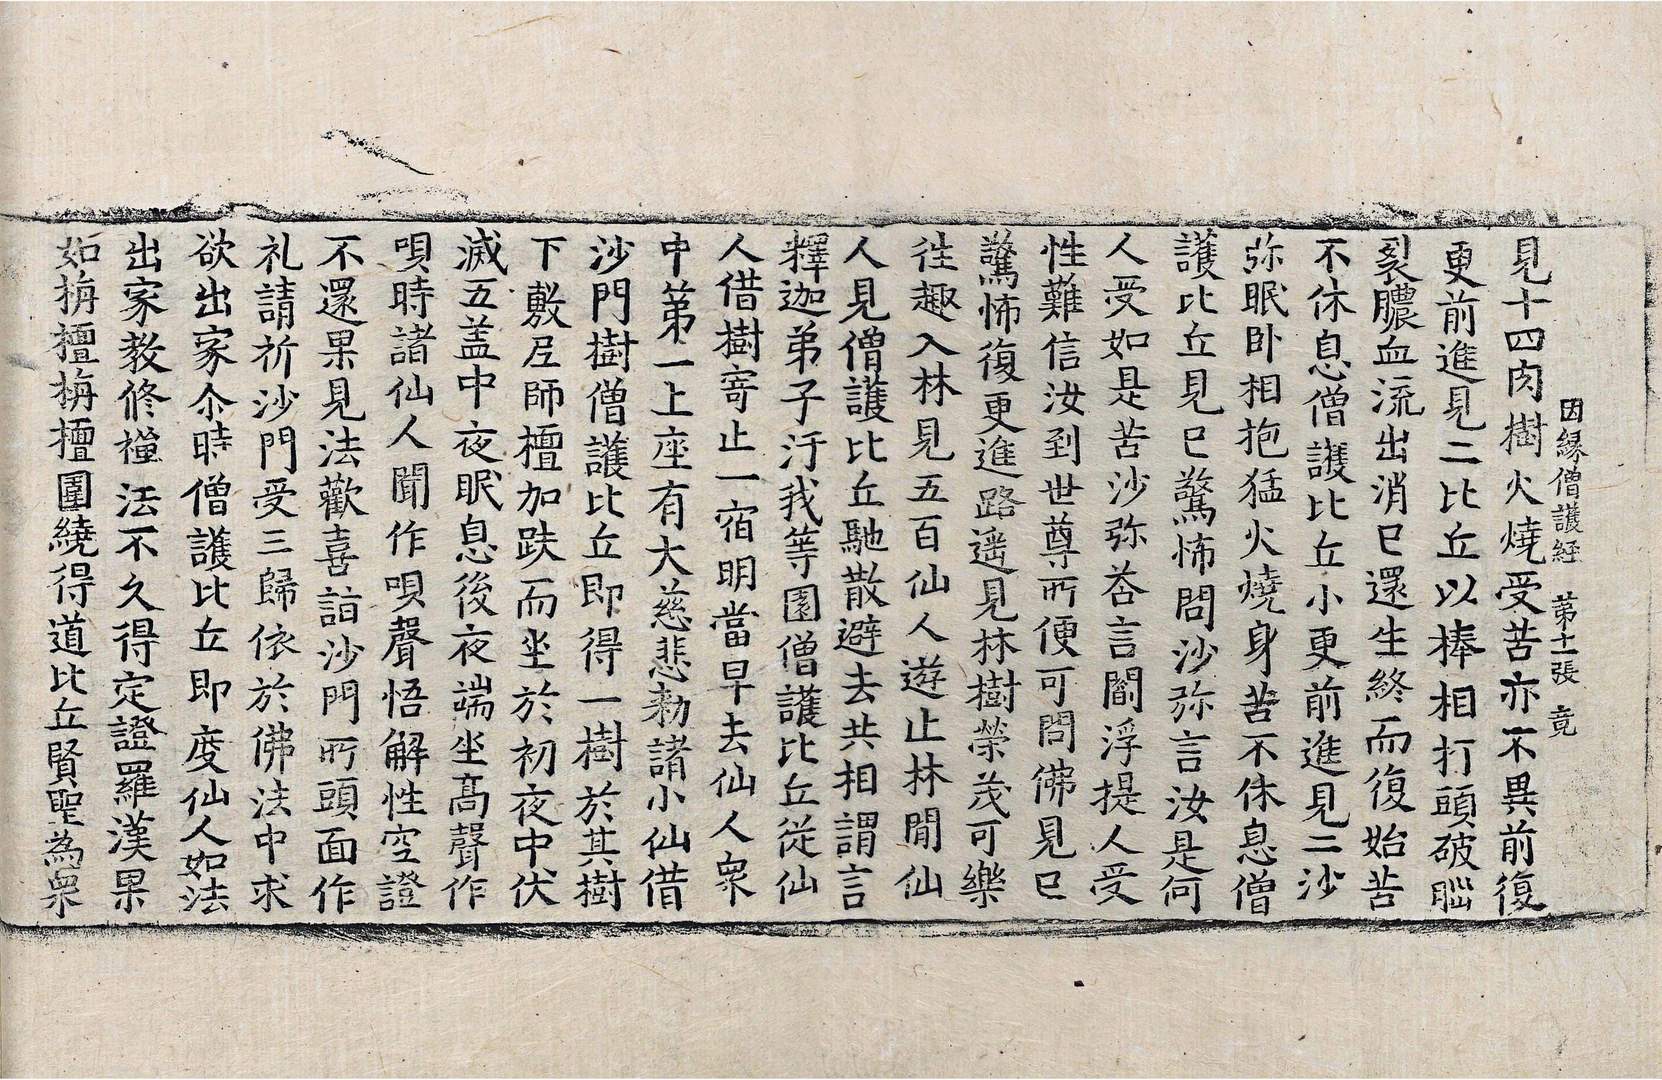 因縁僧護経 第十一張 竟
見十四肉樹火燒受苦亦不異前復
更前進見二比丘以棒相打頭破腦
裂膿血流出消已還生終而復始苦
不休息僧護比丘小更前進見二沙
弥眠卧相抱猛火燒身苦不休息僧
護比丘見已驚怖問沙弥言汝是何
人受如是苦沙弥荅言閻浮提人受
性難信汝到世尊所便可問佛見已
驚怖復更進路遥見林樹榮茂可樂
往趣入林見五百仙人遊止林閒仙
人見僧護比丘馳散避去共相謂言
釋迦弟子汙我等園僧護比丘從仙
人借樹寄止一宿明當早去仙人衆
中第一上座有大慈悲勑諸小仙借
沙門樹僧護比丘即得一樹於其樹
下敷尼師檀加趺而坐於初夜中伏
滅五盖中夜眠息後夜端坐髙聲作
唄時諸仙人聞作唄聲悟解性空證
不還果見法歡喜詣沙門所頭面作
礼請祈沙門受三歸依於佛法中求
欲出家尒時僧護比丘即度仙人如法
出家教修禪法不久得定證羅漢果
如栴檀栴檀圍繞得道比丘賢聖為衆